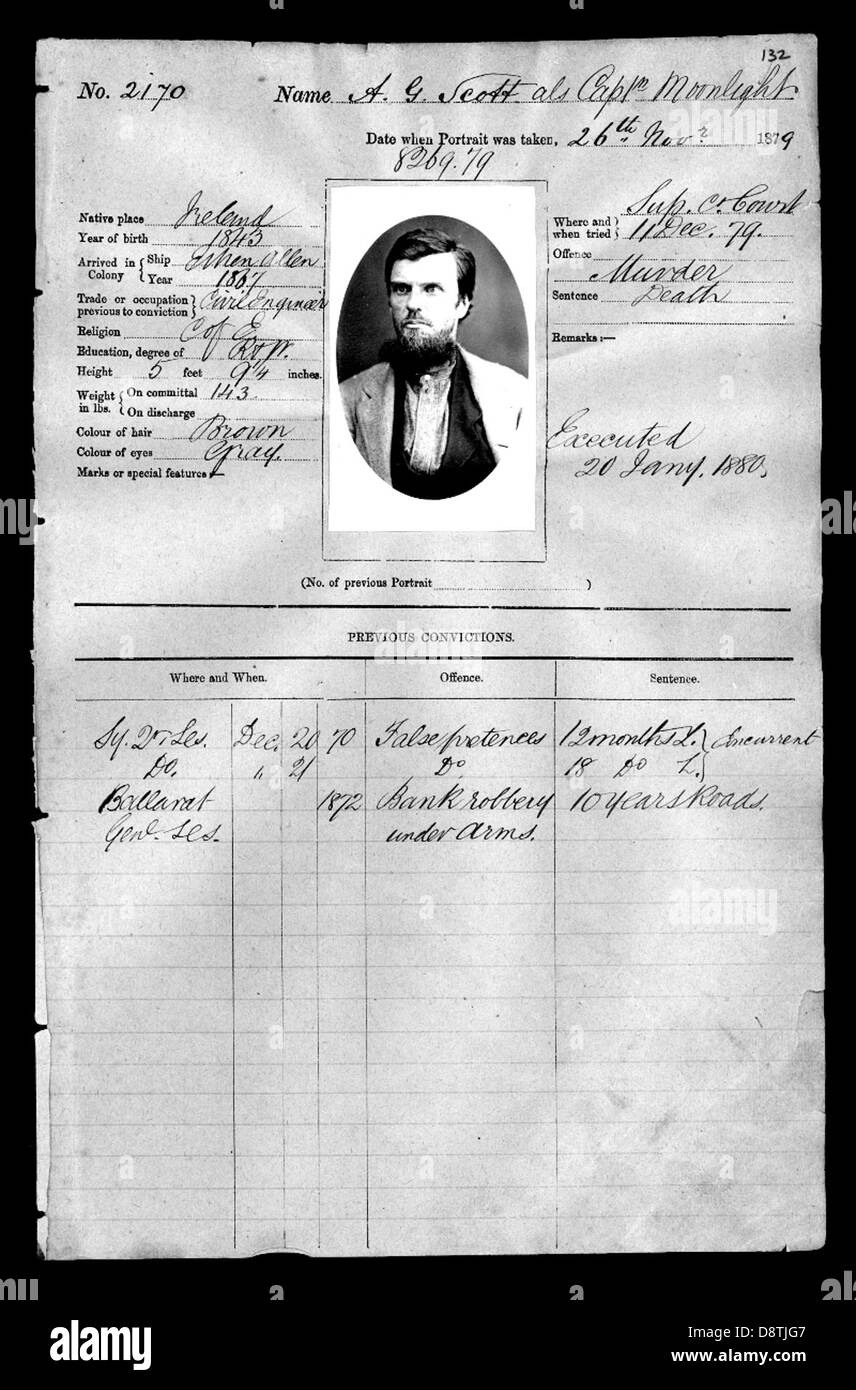 132
No. 2170 Name A. G. Scott als Captn Moonlight
Date when Portrait was taken, 26th Novr. 1879
8269.79
Native place Ireland
Year of birth 1843
Arrived in Colony { Ship Ethen Allen
Year 1867
Trade or occupation previous to conviction } Civil Engineer
Religion C of E
Education, degree of R & W.
Height 5 feet 9 1/4 inches.
Weight in lbs. { On committal 143
On discharge
Colour of hair Brown
Colour of eyes Gray.
Marks or special features:—
Where and when tried } Sup. Cl. Court
11 Dec. 79.
Offence Murder
Sentence Death
Remarks:—
Executed
20 Jany. 1880,
(No. of previous Portrait )
PREVIOUS CONVICTIONS.
Where and When. Offence. Sentence.
Sy. Qr. Ses. Dec. 20 70 False pretences 12 months L. } Concurrent
Do. " 21 Do 18 Do L. }
Ballarat 1872 Bank robbery 10 years Roads.
Genl. Ses. under arms.
alamy
alamy
alamy
a
a
a
alamy
Image ID: D8TJG7
www.alamy.com